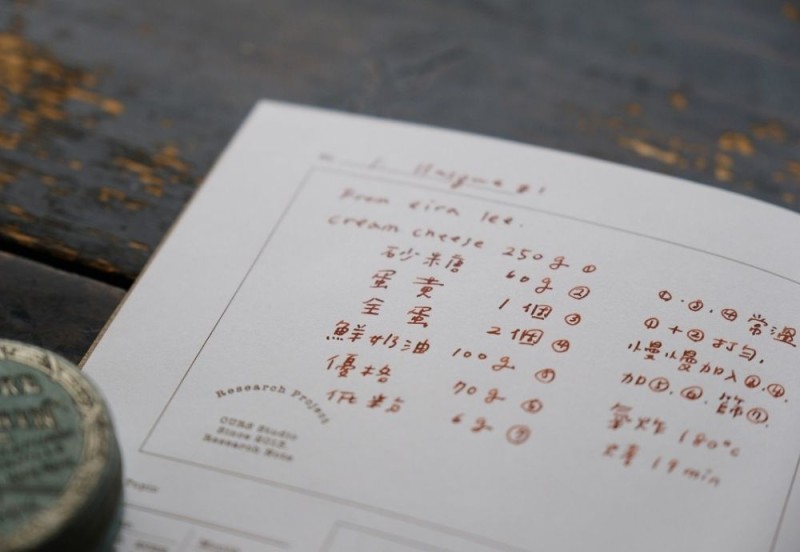 From eirn lee.
cream cheese 250g ①
砂糖 60g ②
蛋黄 1個 ③
全蛋 2個 ④
鮮奶油 100g ⑤
優格 70g ⑥
低粉 6g ⑦
①.③.④ 常溫
①+② 打勻,
慢慢加入③.④.
加⑤.⑥.篩⑦.
氣炸 180°c
烤 19min
Research Project
OURS Studio
Since 2013.
Research Note